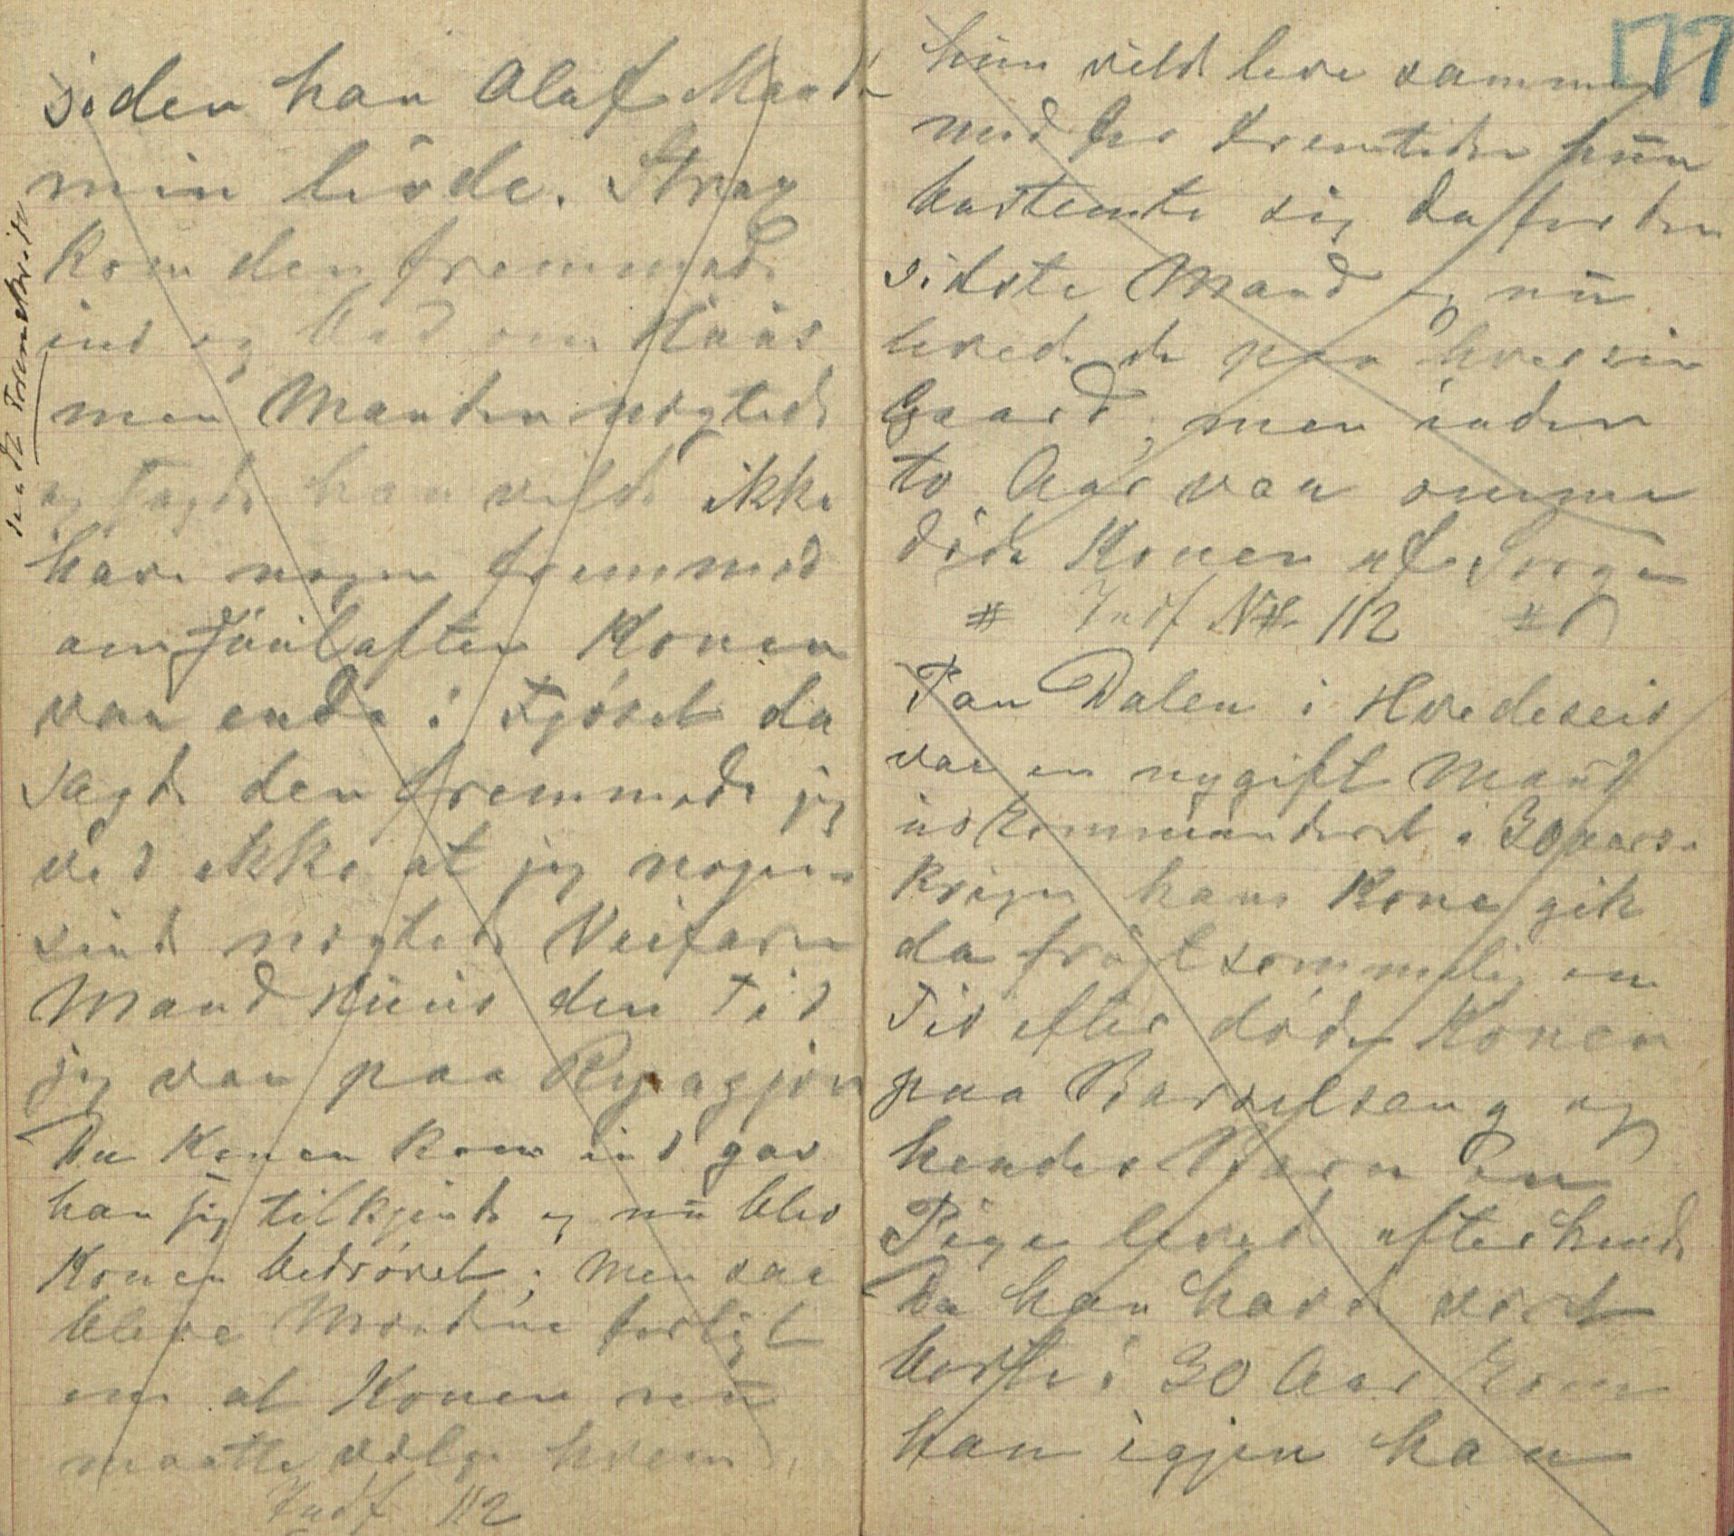 siden han Olaf Mandt
min löde. Strax
kom den fremmade
ind og bad om Huus
men Manden nögtede
og sagde han vilde ikke
have nogen fremmed
om Juulaften Konen
var enda i Fjöset da
sagde den fremmade jeg
ved ikke at jeg nogen-
sinde nögtede Veifarn
Mand Huus den Tid
jeg var paa
Da Konen kom ind gav
han sig tilkjende og nu blev
Konen bedrövet; men saa
bleve Mændene forligt
om at Konen nu
maatte vælge hvem
Indf 112
177
hun vilde leve sammen
med for Fremtiden hun
bestemte sig da for den
sidste Mand og nu
levede de paa hver sin
Gaard, men inden
to Aar var omme
döde Konen af Sorgen
# Indf No 112 #
Paa Dalen i Hvedeseid
var en nygift Mand
udkommanderet i 30aars-
krigen hans Kone gik
da frugtsommelig en
Tid efter döde Konen
paa Barselseng og
hendes Barn en
Pige levede efter hende
Da han havde vært
borte i 30 Aar kom
han igjen han